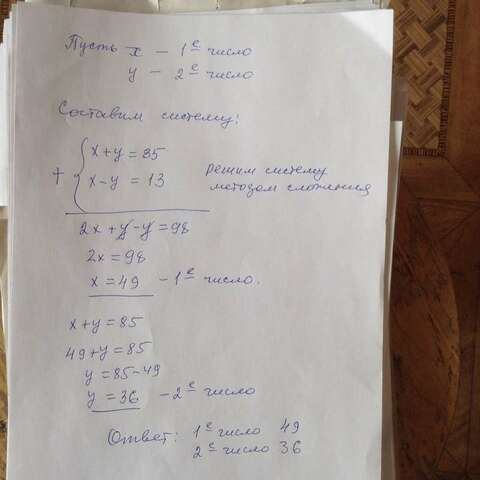 Пусть x – 1е число
y – 2е число
Составим систему:
x+y=85
+ x-y=13 решим систему методом сложения
2x+y-y=98
2x=98
x=49 – 1е число.
x+y=85
49+y=85
y=85-49
y=36 – 2е число
Ответ: 1е число 49
2е число 36